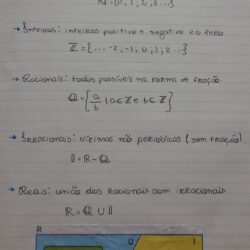 N = {0, 1, 2, 3...}
→ Inteiros: inteiros positivo e negativo e o zero
Z = {... -2, -1, 0, 1, 2...}
→ Racionais: todos possíveis na forma de fração.
Q = {a/b | a ∈ Z e b ∈ Z}
→ Irracionais: dízimas não periódicas (sem fração)
I = R - Q
→ Reais: união dos racionais com irracionais
R = Q ∪ I
R
Q
I